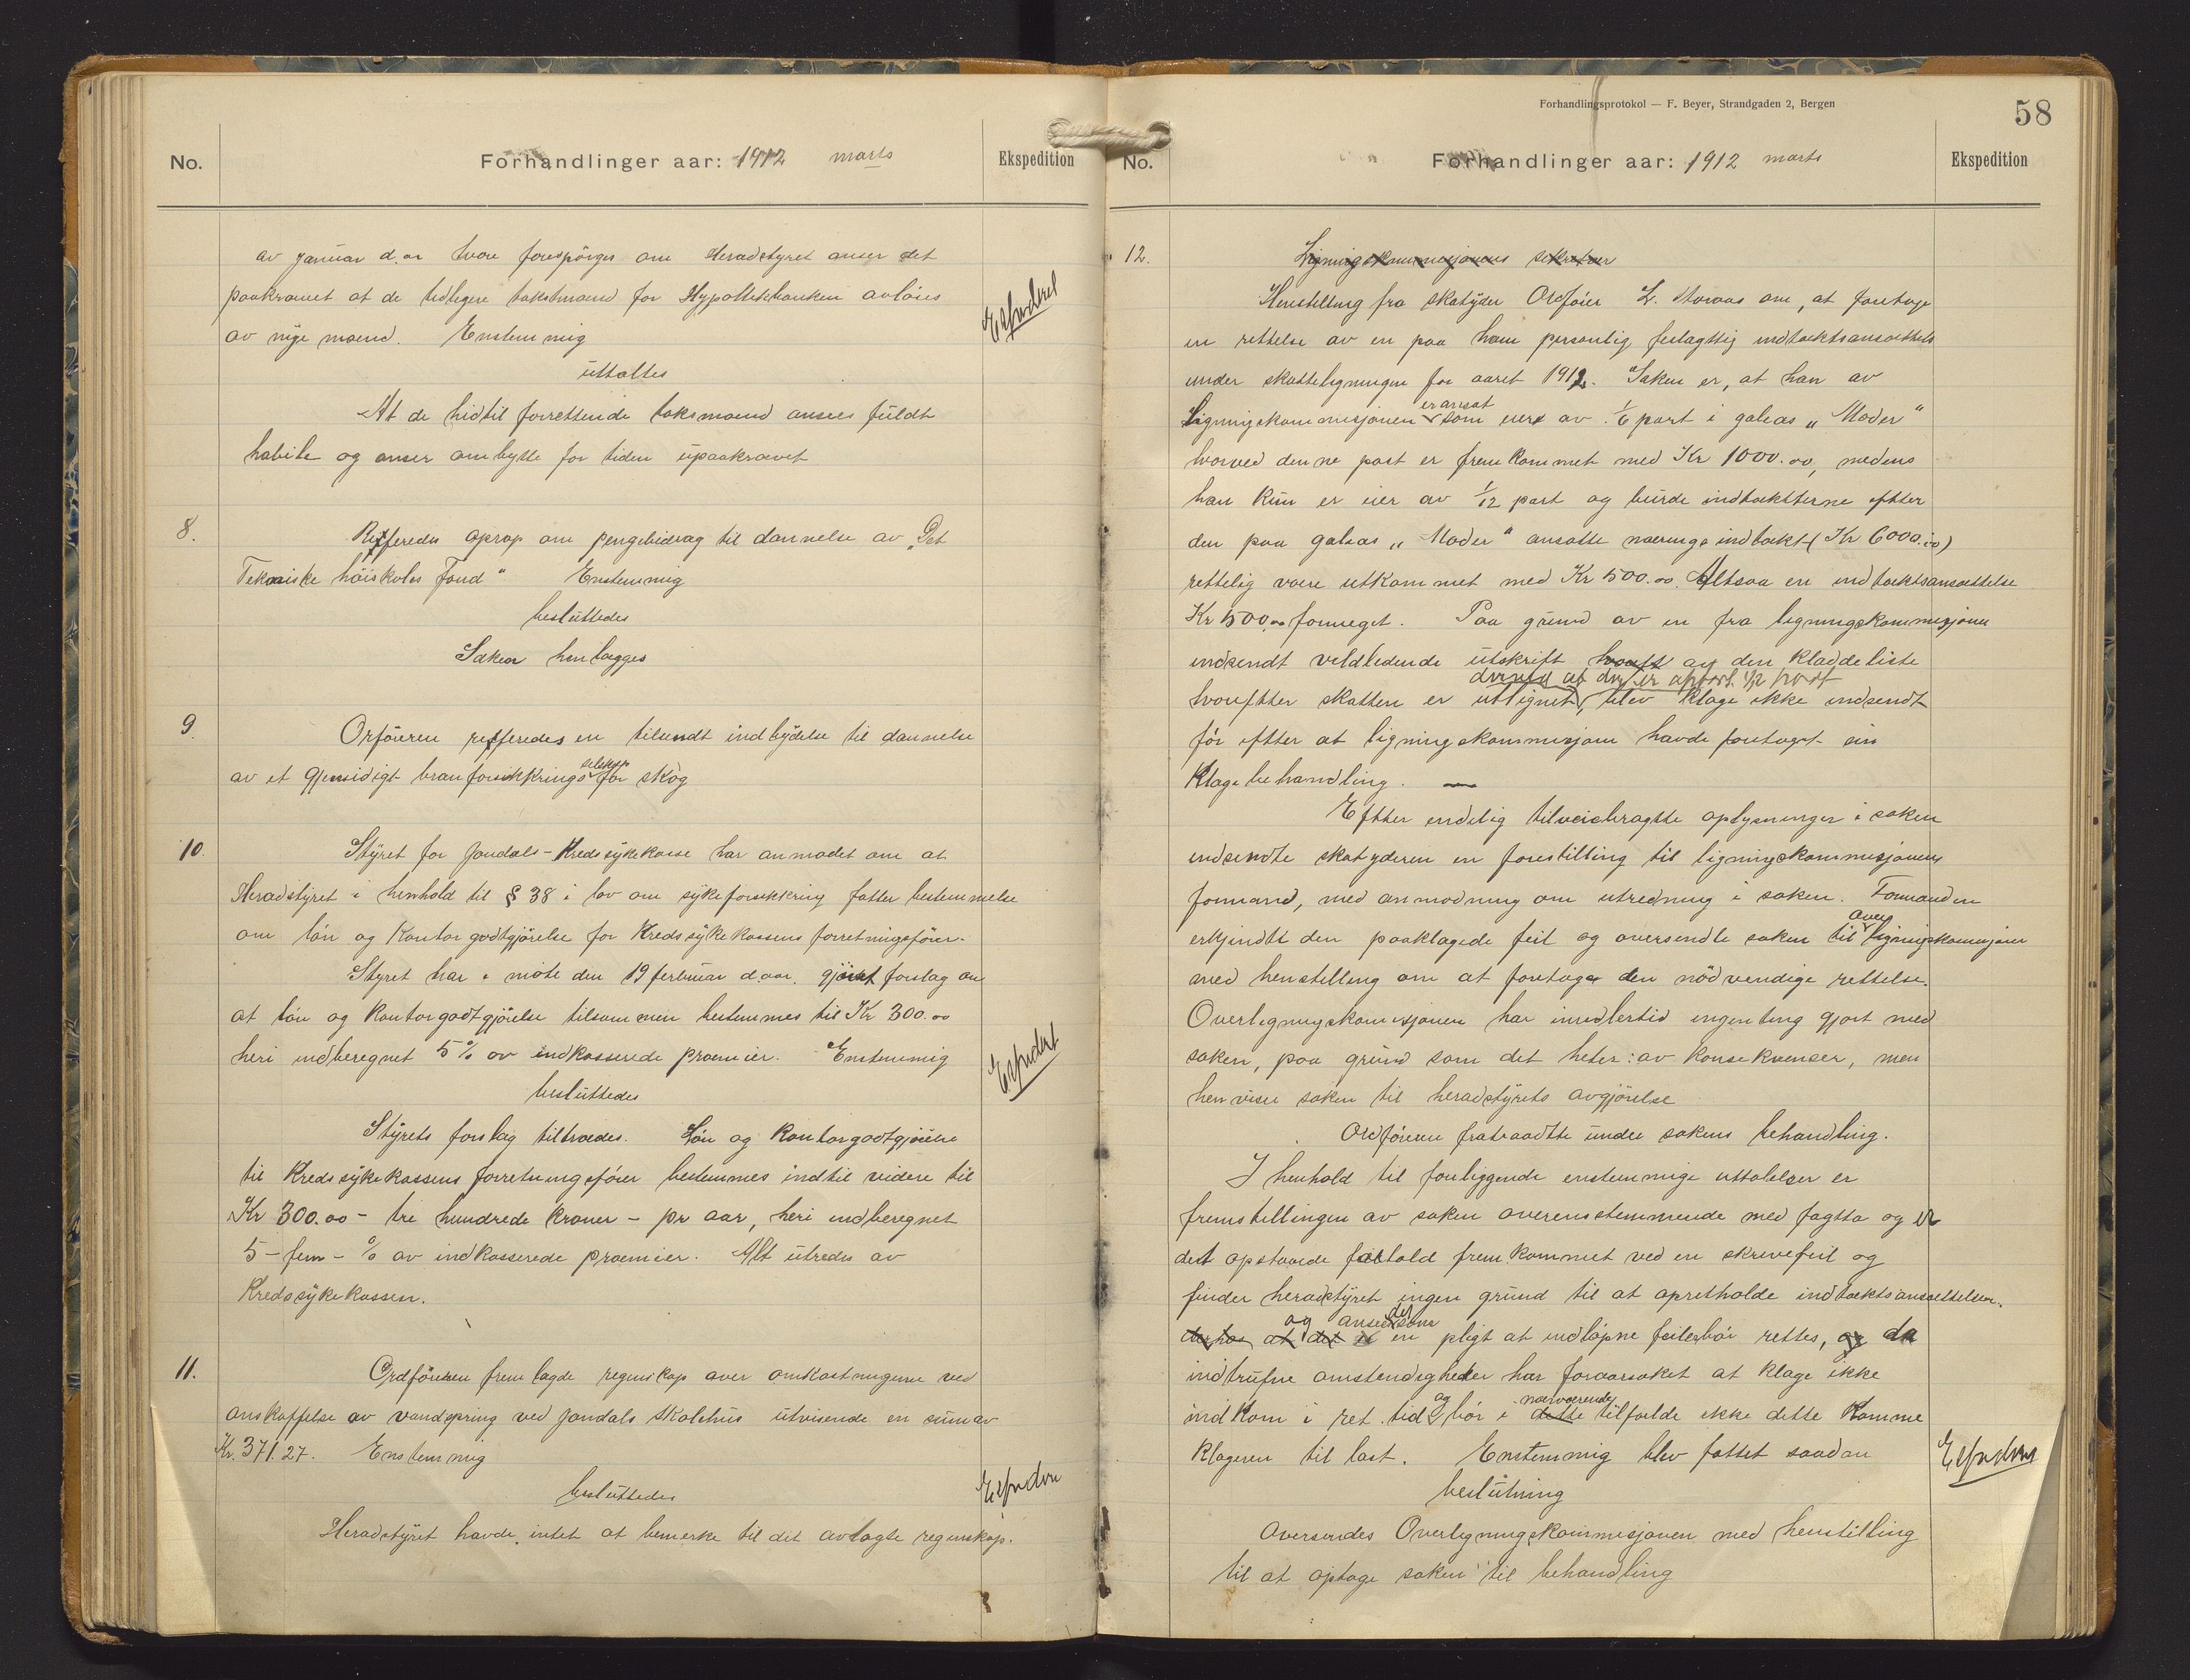 No. Forhandlinger aar: 1912 marts Ekspedition
av januar d.a. hvore forespörges om Heradstyret anser det
paakrævet at de tidligere takstmænd for Hypottekbanken avlöses
av nye mænd. Enstemmig
Expedert
uttaltes
At de hidtil forrettende taksmænd ansees fuldt
habile og anser ombytte for tiden upaakrævet
8. Refferedes oprop om pengebidrag til dannelse av „Det
Tekniske höiskoles Fond" Enstemmig
besluttedes
Saken henlægges
9. Orföreren refferedes en tilsendt indbydelse til dannelse
av et gjensidigt branforsikkrings selskap for skog
10. Styret for Jondals-Kredssykekasse har anmodet om at
Heradstyret i henhold til § 38 i lov om sykeforsikkring fatter bestemmelse
om lön og Kontorgodtgjörelse for Kredssykekassens forretningsförer.
Styret har i möte den 19 februar d.aar. gjort forslag om
at lön og Kontorgodtgjörelse tilsammen bestemmes til Kr 300.00
heri indberegnet 5% av indkasserede præmier. Enstemmig
Expedert
besluttedes
Styrets forslag tiltrædes. Lön og Kontorgodtgjörelse
til Kredssykekassens forretningsförer bestemmes indtil videre til
Kr 300.00 - tre hundrede kroner - pr aar, heri indberegnet
5 - fem - % av indkasserede præmier. Alt utredes av
Kredssykekassen.
11. Ordföreren fremlagde regnskap over omkostningerne ved
anskaffelse av vandspring ved Jondals Skolehus utvisende en sum av
Kr. 371.27. Enstemmig
besluttedes
Heradstyret havde intet at bemerke til det avlagte regnskap.
Forhandlingsprotokol — F. Beyer, Strandgaden 2, Bergen
58
No. Forhandlinger aar: 1912 marts Ekspedition
12. Ligningskommisjonens sekretær
Henstilling fra skatyder Ordförer L. Storaas om, at foretage
en rettelse av en paa ham personlig feilagttig indtæktsansættels
under skatteligningen for aaret 1912. Saken er, at han av
Ligningskommisjonen er ansat som eier av 1/6 part i galeas „Moder"
hvorved denne post er fremkommet med Kr 1000.00, medens
han kun er eier av 1/12 part og burde indtækterne efter
den paa galeas „Moder" ansatte næringsindtækt (Kr 6000.00)
rettelig være utkommet med Kr 500.00. Altsaa en indtæktsansættelse
Kr 500.00 formeget. Paa grund av en fra ligningskommisjonen
indsendt veildledende utskrift av den kladdeliste
hvorefter skatten er utlignet, blev klage ikke indsendt
för efter at ligningskommisjonen havde foretaget sin
Klagebehandling. —
Efter endelig tilveiebragtte oplysninger i saken
indsendte skatyderen en forestilling til ligningskommisjonens
formand, med anmodning om utredning i saken. Formanden
erkjendte den paaklagede feil og oversendte saken til over ligningskomisjonen
med henstilling om at foretage den nödvendige rettelse.
Overligningskomisjonen har imidlertid ingenting gjort med
saken, paa grund som det heter: av konsekvenser, men
henviser saken til heradstyrets avgjörelse
Ordföreren fratraadtte under sakens behandling.
I henhold til foreliggende enstemmige uttalelser er
fremstillingen av saken overensstemmende med fagtta og er
det opstaaede forhold fremkommet ved en skrivefeil og
finder heradstyret ingen grund til at opretholde indtæktsansættelsen.
og anser det som en pligt at indløpne feil bör rettes, og da
indtrufne omstendigheter har foraarsaket at klage ikke
indkom i ret tid og bör i nærværende tilfælde ikke dette komme
klageren til last. Enstemmig blev fattet saadan
beslutning
Oversendes Overligningskommisjonen med henstilling
til at optage saken til behandling